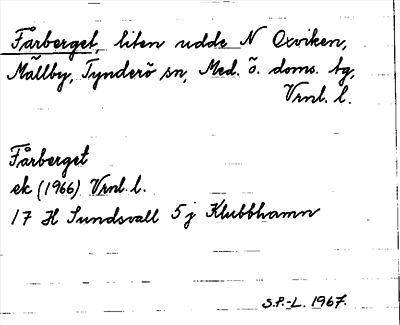 Fårberget, liten udde N Oxviken,
Mällby, Tynderö sn, Med. ö. doms. tg,
Vrnl. l.
Fårberget
ek (1966) Vrnl. l.
17 H Sundsvall 5 j Klubbhamn
S.P.-L. 1967.